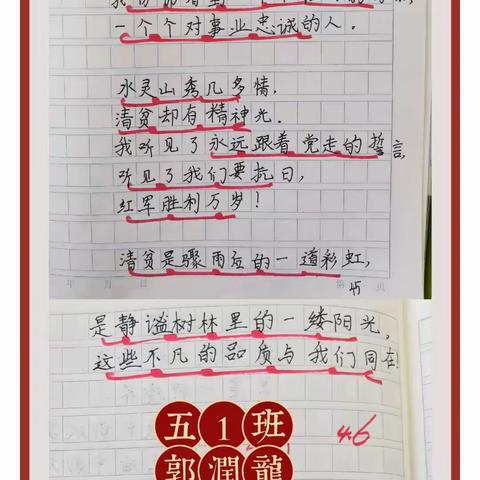 一个个对事业忠诚的人.
水灵山秀几多情,
清贫却有精神光.
我听见了永远跟着党走的誓言,
听见了我们要抗日,
红军胜利万岁!
清贫是骤雨后的一道彩虹,
年 月 日 第 页
45
是静谧树林里的一缕阳光,
这些不凡的品质与我们同在!
46
五1班
郭潤龍